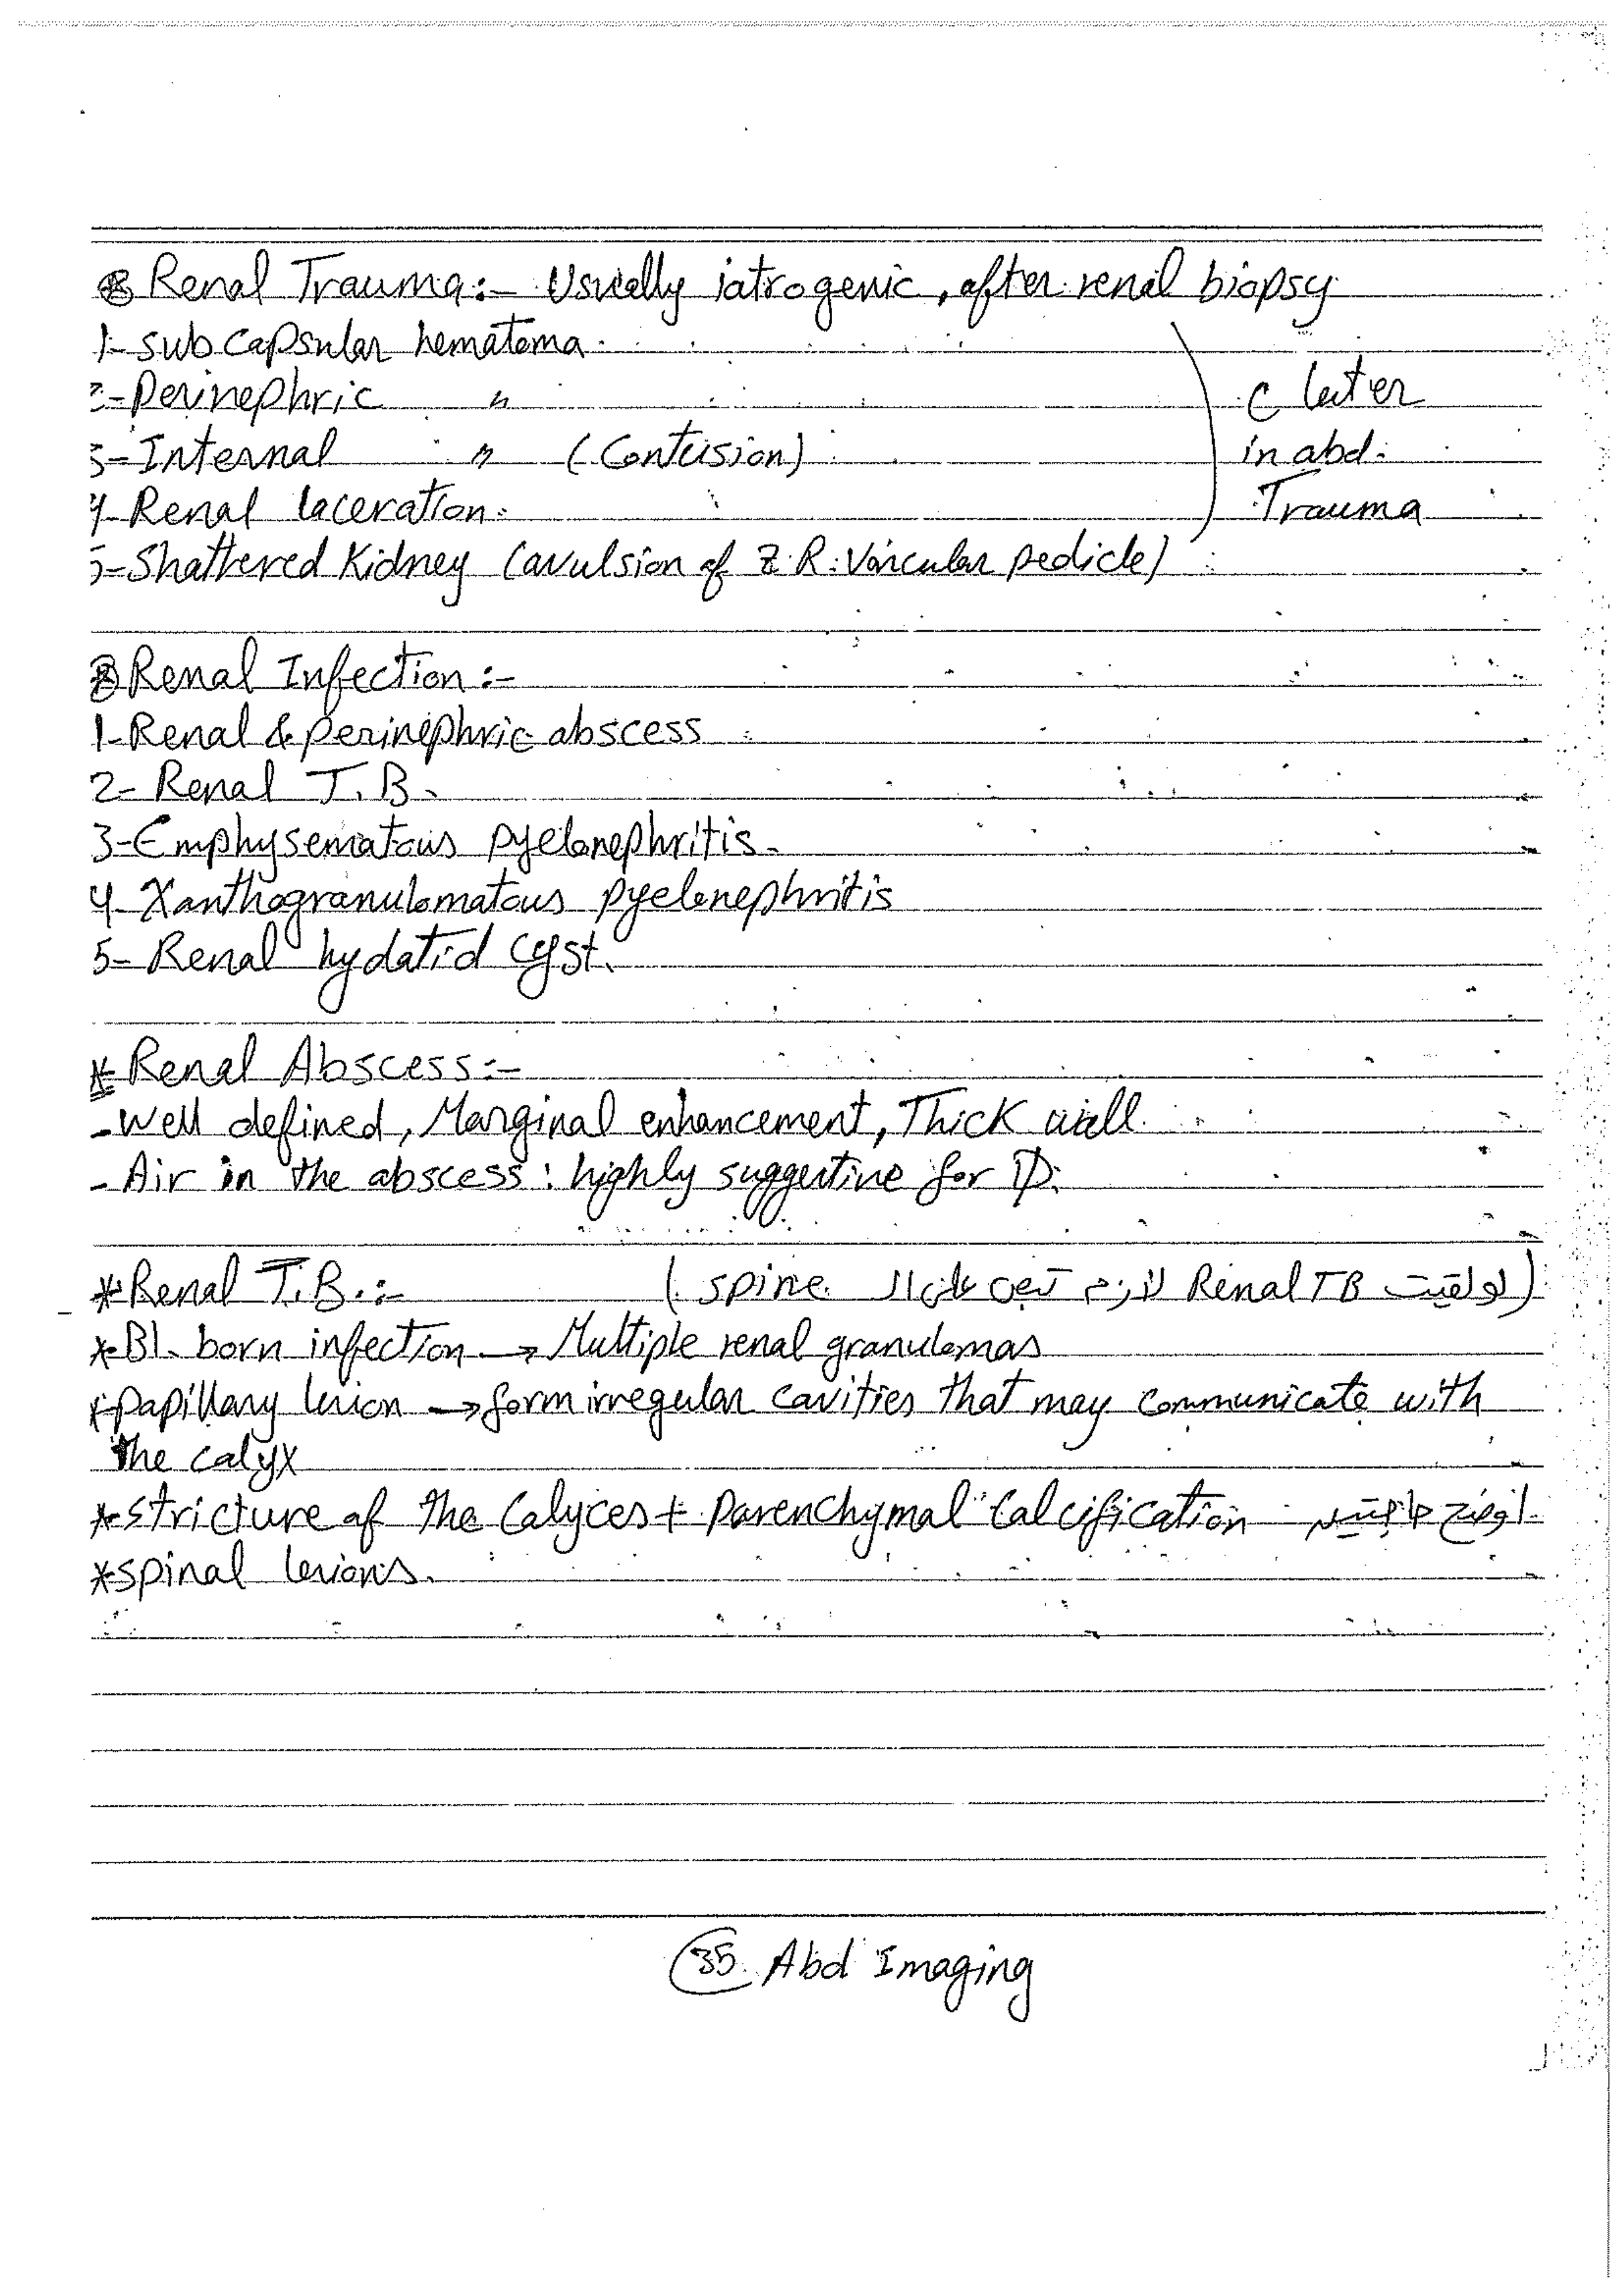 ⊛ Renal Trauma:- Usually iatrogenic, after renal biopsy
1- subcapsular hematoma.
2- Perinephric "
3- Internal " (Contusion)
4- Renal laceration.
5- Shattered Kidney (avulsion of R. Vascular pedicle)
C later
in abd.
Trauma
⊛ Renal Infection:-
1- Renal & perinephric abscess
2- Renal T.B.
3- Emphysematous pyelonephritis.
4- Xanthogranulomatous pyelonephritis
5- Renal hydatid cyst.
* Renal Abscess:-
- Well defined, Marginal enhancement, Thick wall.
- Air in the abscess : highly suggestive for D.
* Renal T.B.:- (لو لقيت Renal TB لازم تبص على ال spine)
* Bl. born infection → Multiple renal granulomas
* papillary lesion → form irregular cavities that may communicate with
the calyx
* stricture of the Calyces + Parenchymal Calcification اوضح
* spinal lesions.
35 Abd Imaging